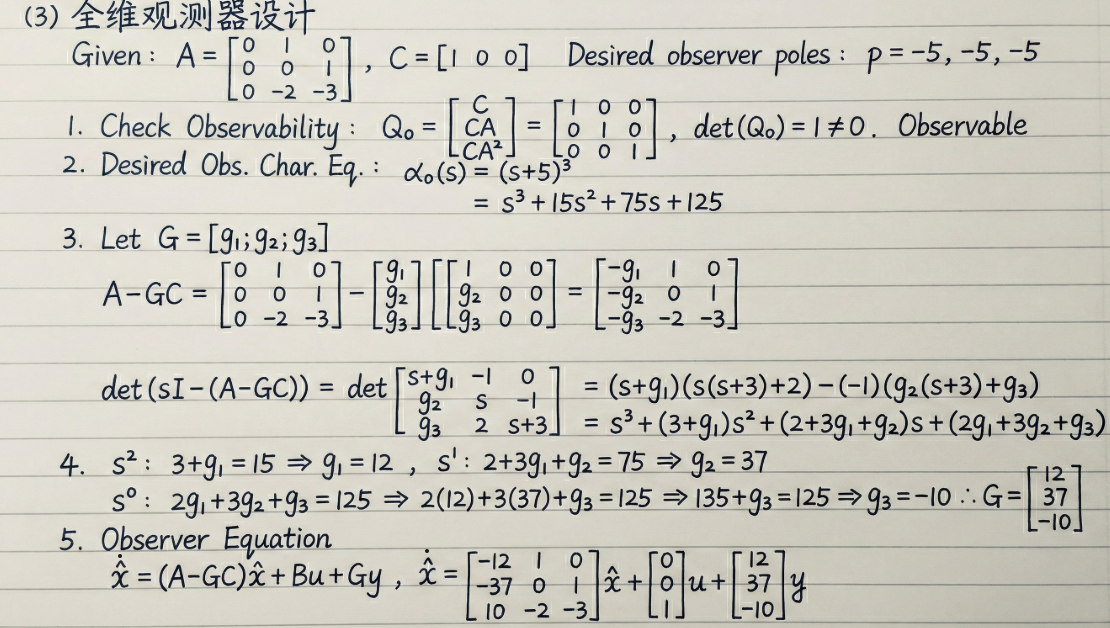 (3) 全维观测器设计
Given: A = [0 1 0; 0 0 1; 0 -2 -3], C = [1 0 0] Desired observer poles: p = -5, -5, -5
1. Check Observability: Qₒ = [C; CA; CA²] = [1 0 0; 0 1 0; 0 0 1], det(Qₒ) = 1 ≠ 0. Observable
2. Desired Obs. Char. Eq.: αₒ(s) = (s+5)³
= s³ + 15s² + 75s + 125
3. Let G = [g₁; g₂; g₃]
A-GC = [0 1 0; 0 0 1; 0 -2 -3] - [g₁; g₂; g₃] [[1 0 0; g₂ 0 0; g₃ 0 0] = [-g₁ 1 0; -g₂ 0 1; -g₃ -2 -3]
det(sI-(A-GC)) = det [s+g₁ -1 0; g₂ s -1; g₃ 2 s+3] = (s+g₁)(s(s+3)+2) - (-1)(g₂(s+3)+g₃)
= s³ + (3+g₁)s² + (2+3g₁+g₂)s + (2g₁+3g₂+g₃)
4. s²: 3+g₁ = 15 ⇒ g₁ = 12, s¹: 2+3g₁+g₂ = 75 ⇒ g₂ = 37
s⁰: 2g₁+3g₂+g₃ = 125 ⇒ 2(12)+3(37)+g₃ = 125 ⇒ 135+g₃ = 125 ⇒ g₃ = -10 ∴ G = [12; 37; -10]
5. Observer Equation
x̂̇ = (A-GC)x̂ + Bu + Gy, x̂̇ = [-12 1 0; -37 0 1; 10 -2 -3] x̂ + [0; 0; 1] u + [12; 37; -10] y